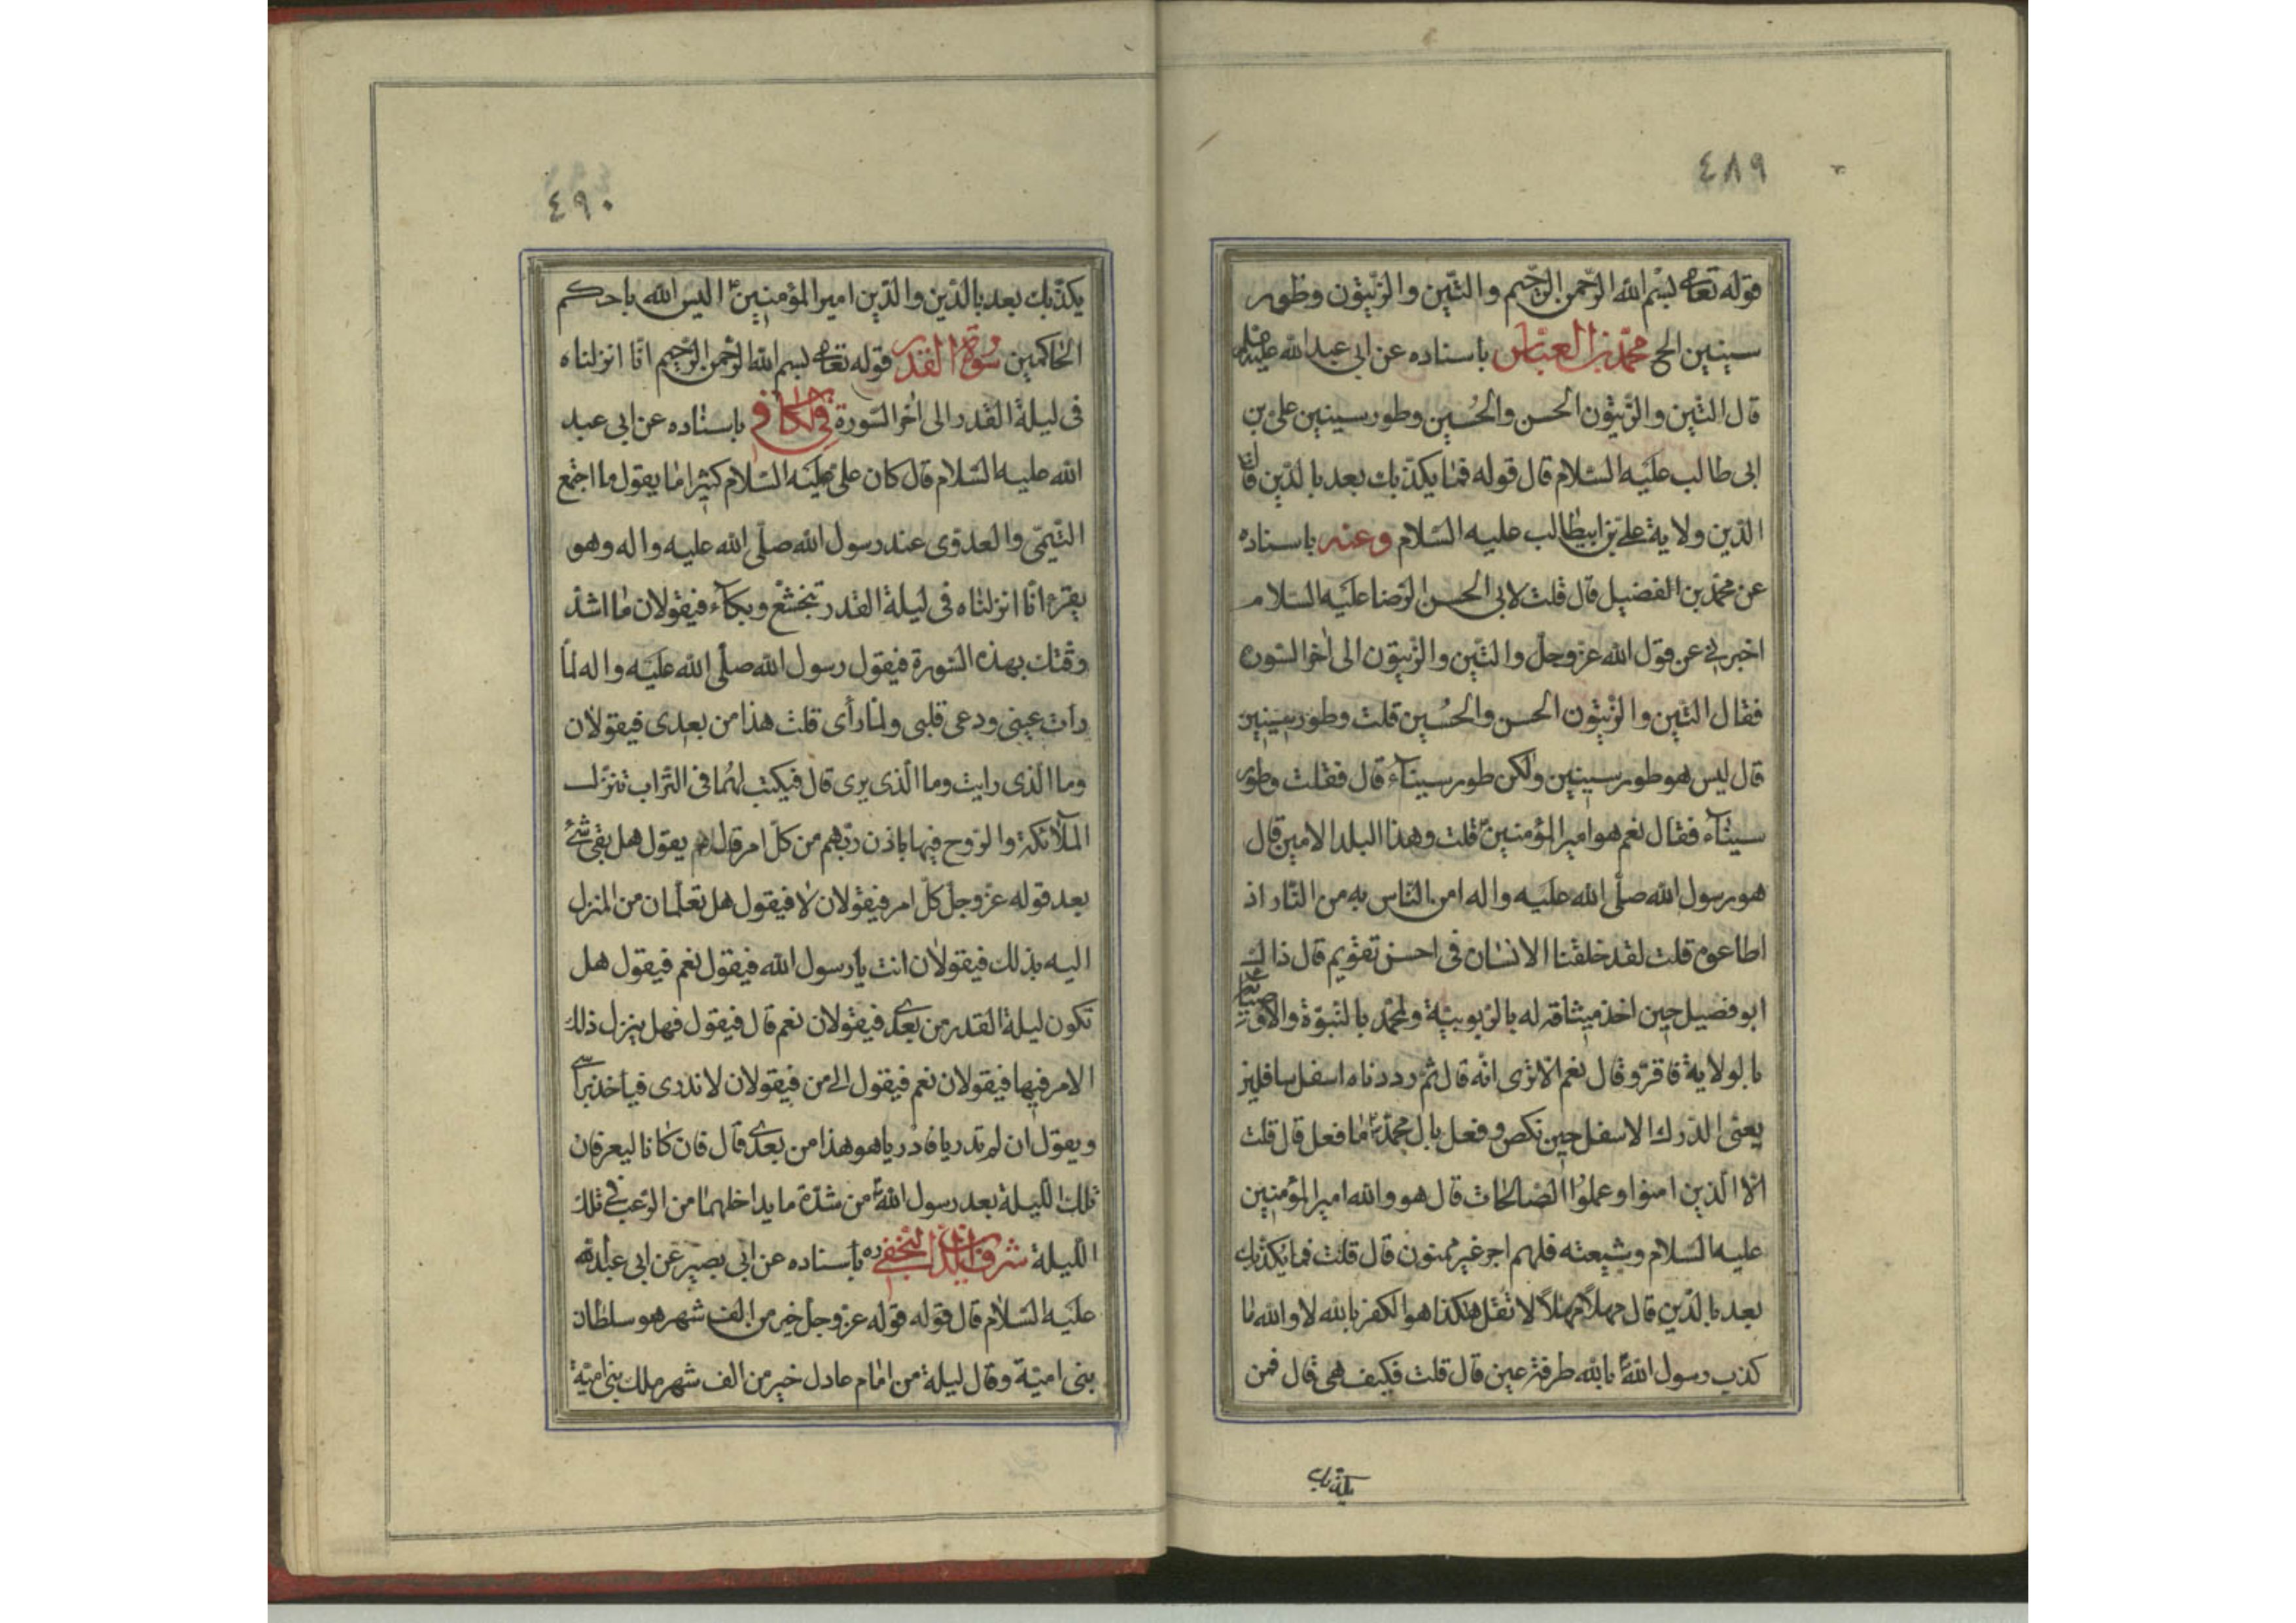 ٤٨٩
قوله تعالى بسم الله الرحمن الرحيم والتين والزيتون وطور
سينين الخ محمد بن العباس باسناده عن ابى عبد الله عليه السلام
قال التين والزيتون الحسن والحسين وطور سينين على بن
ابى طالب عليه السلام قال قوله فما يكذبك بعد بالدين قال
الدين ولاية على بن ابيطالب عليه السلام وعنه باسناده
عن محمد بن الفضيل قال قلت لابى الحسن الرضا عليه السلام
اخبرنى عن قول الله عز وجل والتين والزيتون الى اخر السورة
فقال التين والزيتون الحسن والحسين قلت وطور سينين
قال ليس هو طور سينين ولكن طور سيناء قال فقلت وطور
سيناء فقال نعم هو امير المؤمنين قلت وهذا البلد الامين قال
هو رسول الله صلى الله عليه واله امن الناس به من النار اذ
اطاعوه قلت لقد خلقنا الانسان فى احسن تقويم قال ذاك
ابو فضيل حين اخذ ميثاقه له بالربوبية ولمحمد بالنبوة ولاوصيائه
بالولاية فاقر وقال نعم الا ترى انه قال ثم رددناه اسفل سافلين
يعنى الدرك الاسفل حين نكص وفعل بال محمد ما فعل قال قلت
الا الذين امنوا وعملوا الصالحات قال هو والله امير المؤمنين
عليه السلام وشيعته فلهم اجر غير ممنون قال قلت فما يكذبك
بعد بالدين قال مهلا مهلا لا تقل هكذا هو الكفر بالله لا والله ما
كذب رسول الله بالله طرفة عين قال قلت فكيف هى قال فمن
يكذبك
٤٩٠
يكذبك بعد بالدين والدين امير المؤمنين اليس الله باحكم
الحاكمين سورة القدر قوله تعالى بسم الله الرحمن الرحيم انا انزلناه
فى ليلة القدر الى اخر السورة فى الكافى باسناده عن ابى عبد
الله عليه السلام قال كان على عليه السلام كثيرا ما يقول ما اجتمع
التيمى والعدوى عند رسول الله صلى الله عليه واله وهو
يقرء انا انزلناه فى ليلة القدر بتخشع وبكاء فيقولان ما اشد
رقتك بهذه السورة فيقول رسول الله صلى الله عليه واله لما
رات عينى ودعى قلبى ولما رأى قلت هذا من بعدى فيقولان
وما الذى رايت وما الذى يرى قال فيكتب لهما فى التراب تنزل
الملائكة والروح فيها باذن ربهم من كل امر قال ثم يقول هل بقى شئ
بعد قوله عز وجل كل امر فيقولان لا فيقول هل تعلمان من المنزل
اليه بذلك فيقولان انت يا رسول الله فيقول نعم فيقول هل
تكون ليلة القدر من بعدى فيقولان نعم قال فيقول فهل ينزل ذلك
الامر فيها فيقولان نعم فيقول الى من فيقولان لا ندرى فياخذ براسى
ويقول ان لم تدريا فادريا هو هذا من بعدى قال فان كانا ليعرفان
تلك الليلة بعد رسول الله من شدة ما يداخلهما من الرعب فى تلك
الليلة شرف الدين النجفى ره باسناده عن ابى بصير عن ابى عبد الله
عليه السلام قال قوله قوله عز وجل خير من الف شهر هو سلطان
بنى امية وقال ليلة من امام عادل خير من الف شهر ملك بنى امية